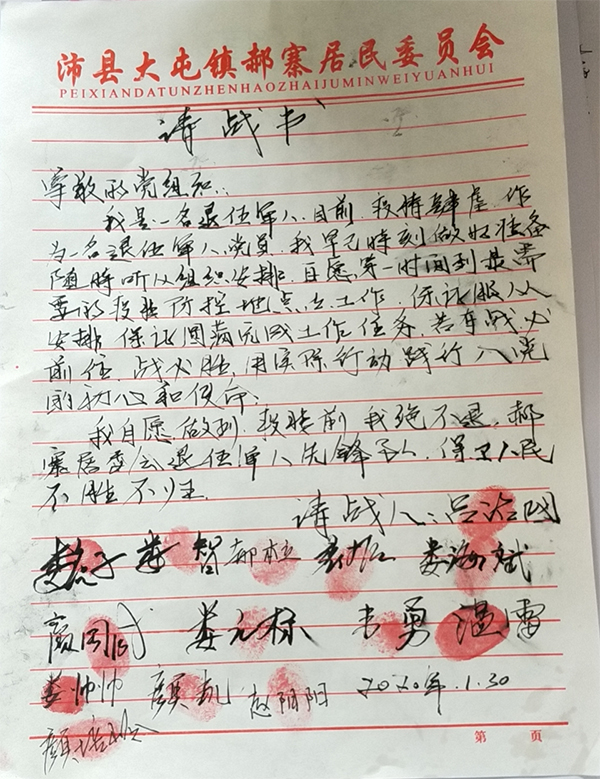 沛县大屯镇郝寨居民委员会
PEIXIANDATUNZHENHAOZHAIJUMINWEIYUANHUI
请战书
尊敬的党组织：
我是一名退伍军人，目前疫情肆虐，作
为一名退伍军人党员，我早已时刻做好准备
随时听从组织安排，自愿第一时间到最需
要的疫情防控地点去工作，保证服从
安排，保证圆满完成工作任务，若有战必
前往，战必胜，用实际行动践行入党
的初心和使命。
我自愿做到，疫情前我绝不退，郝
寨居委会退伍军人先锋队，保卫人民
不胜不归
请战人：吕
智 郝
娄海斌
娄元标 韦勇 温雷
娄帅帅 颜凯 赵阴阳 2020年.1.30
颜
第 页